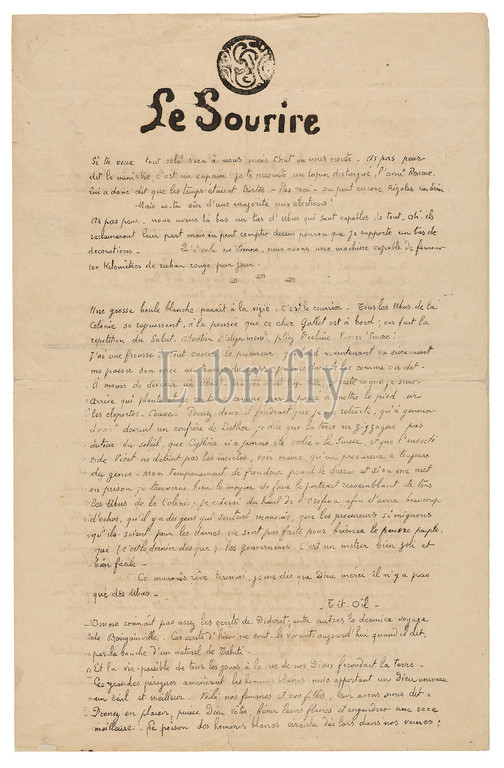 Le Sourire
Si tu veux tout cela sera à nous mais chut on nous écoute - As pas peur
dit le ministre c'est un copain: je te présente un lapin distingué, l'ami
Qui a donc dit que les temps étaient tristes - Pas vrai - On peut encore rigoler un brin.
Mais es-tu sûr d'une majorité aux élections?
As pas peur. nous avons là bas un tas d'Ubus qui sont capables de tout. ah! ils
réclameront leur part mais on peut compter dessus pourvu que je rapporte un tas de
décorations - Qu'à cela ne tienne, nous avons une machine capable de fournir
100 kilomètres de ruban rouge par jour.
Une grosse boule blanche paraît à la vigie, c'est le courrier. Tous les Ubus de la
Colonie se à la pensée que ce cher Gallet est à bord; on fait la
répétition du Salut. Attention l'alignement, pliez l'échine
J'ai une frousse à tout casser le procureur maintenant va sûrement
me passer
A moins de devenir un Ubus
Librifly
Arrive qui plante mettre le pied sur
les cloportes. Pensez donc il faudrait que je me rétracte, qu'à genoux
devant un confrère de je dise que la terre ne zigzague pas
autour du soleil, que Cythère n'a jamais été code à la Suisse, et que l'insecti-
cide Vicat ne détruit pas les insectes, voir même qu'un procureur a toujours
du génie - Mon tempérament de frondeur prend le dessus et si on me met
en prison je trouverai bien le moyen de faire le portrait ressemblant de tous
les Ubus de la Colonie; je crierai du haut de l'Orofina afin d'avoir beaucoup
d'échos, qu'il y a des gens qui sentent mauvais, que les procureurs si mignons
qu'ils soient pour les dames, ne sont pas faits pour brimer le pauvre peuple,
que (c'est le dernier des que) les gouverneurs. C'est un métier bien joli et
bien facile -
Ce mauvais rêve terminé, je me dis que Dieu merci il n'y a pas
que des Ubus -
Tit. Oil -
On ne connaît pas assez les écrits de Diderot; entre autres le dernier voyage
de Bougainville. Ces écrits d'hier ne sont-ils vivants aujourd'hui quand il dit,
par la bouche d'un naturel de Tahiti
"Et la vie paisible de tous les jours à la vie de nos Dieux fécondait la Terre -
Les grandes pirogues amenèrent les hommes blancs nous apportant un Dieu nouveau
un seul et meilleur - Voilà nos femmes et nos filles, leur avons nous dit -
Prenez en plaisir, puisse Dieu votre, bénir leurs flancs et engendrer une race
meilleure. - Le poison des hommes blancs circula dès lors dans nos veines;